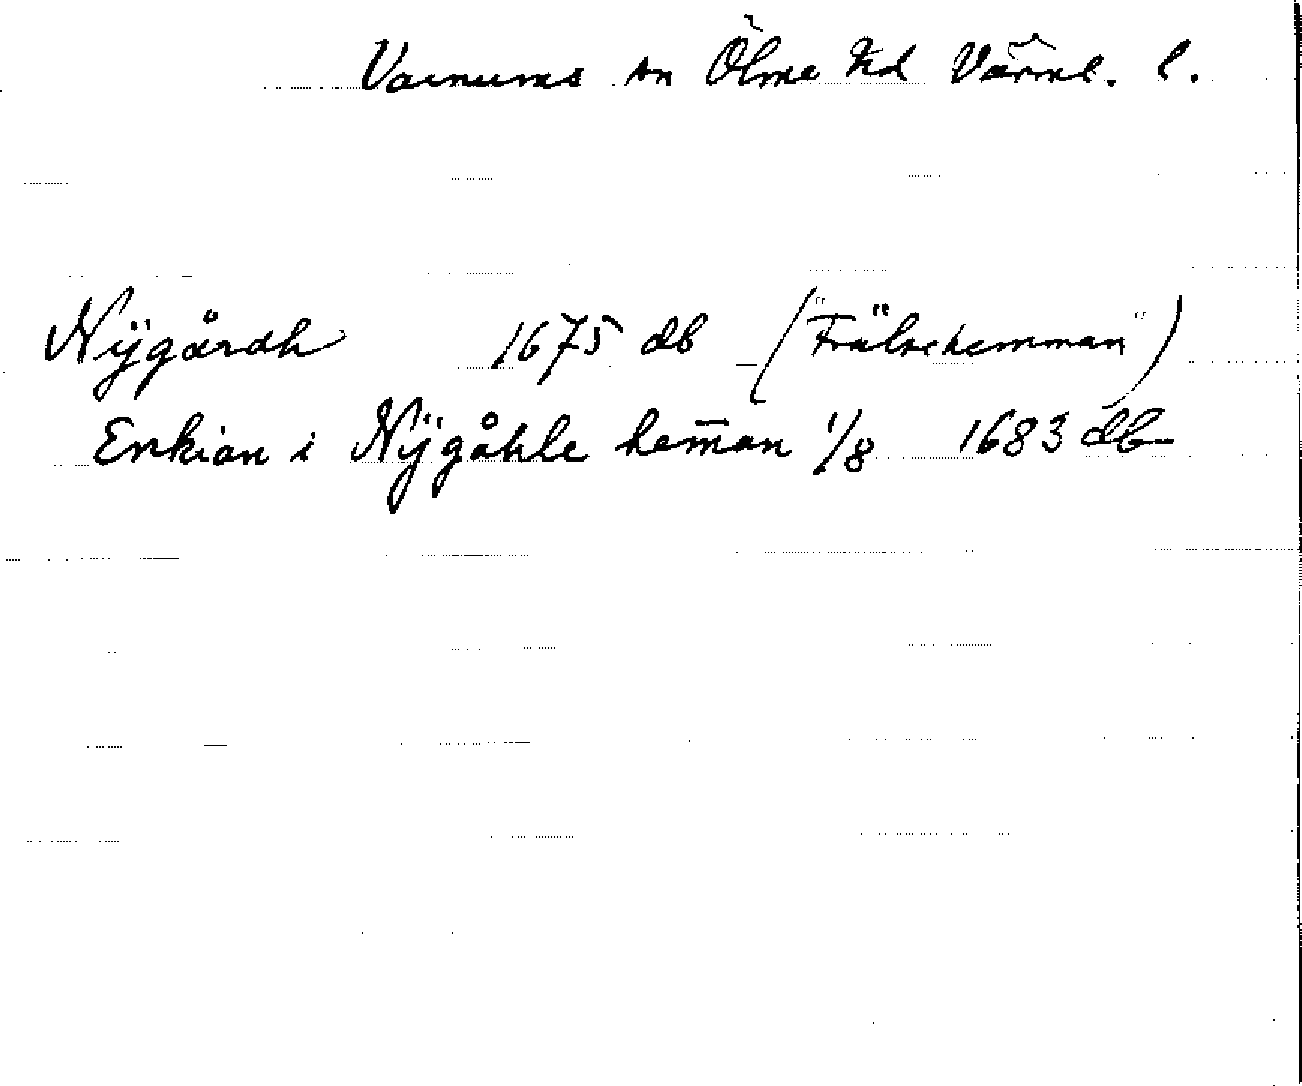 Varnums sn Ölme hd Värml. l.
Nÿgårdh 1675 db ("Frälsehemman")
Enkian i Nÿgåhle hem̄an 1/8 1683 db